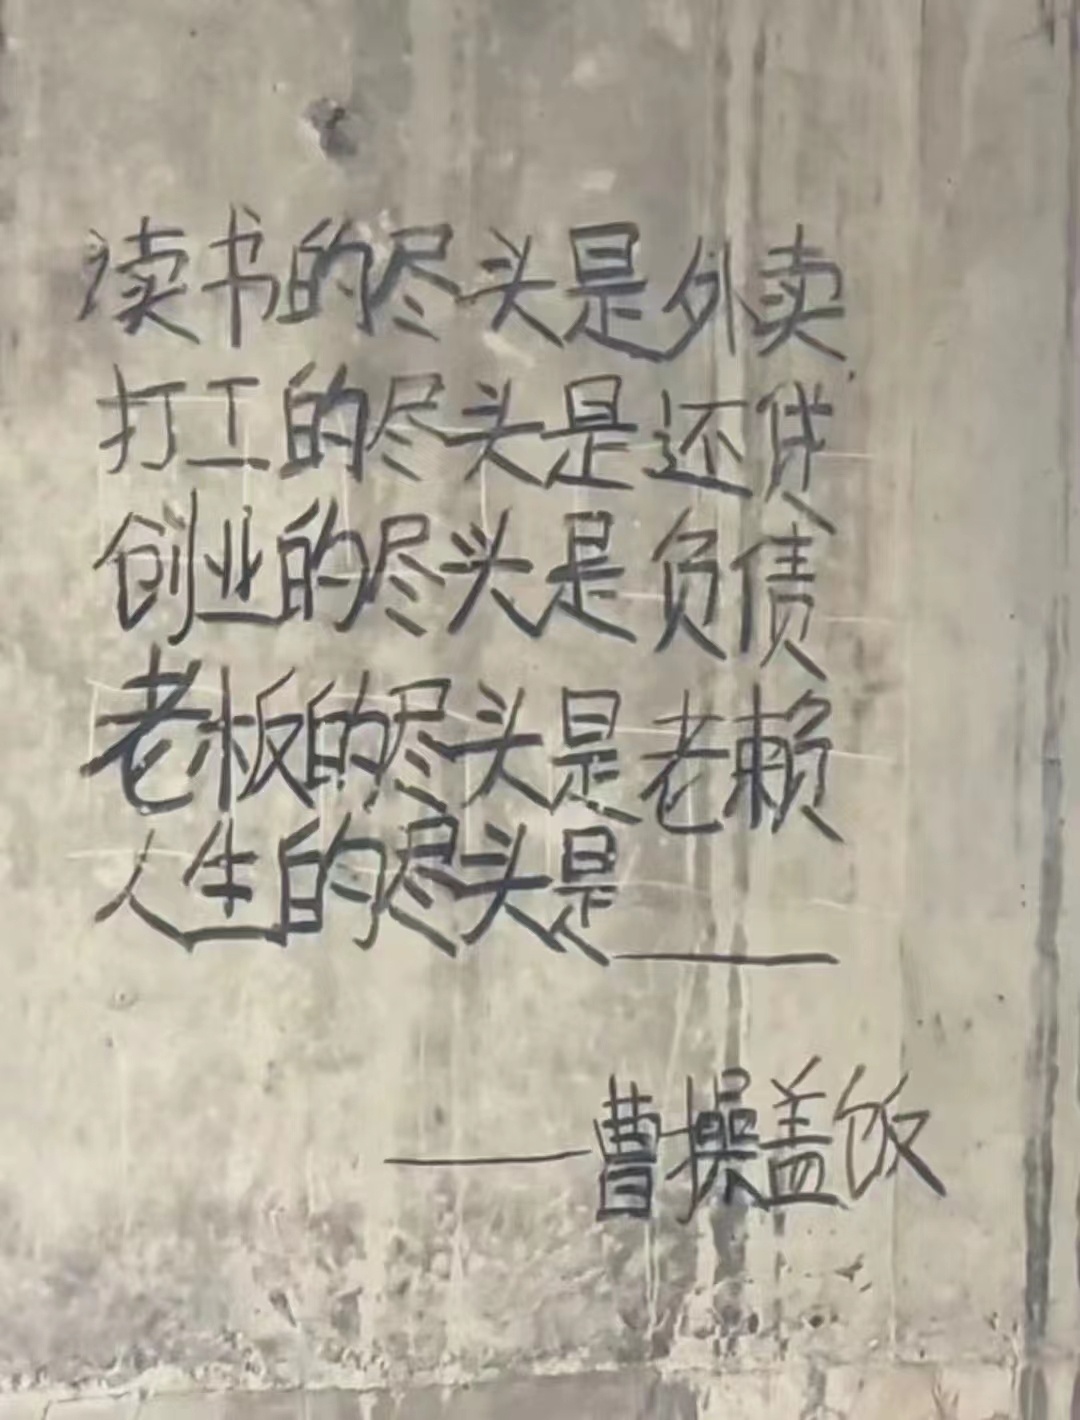 读书的尽头是外卖
打工的尽头是还贷
创业的尽头是负债
老板的尽头是老赖
人生的尽头是____
——曹操盖饭